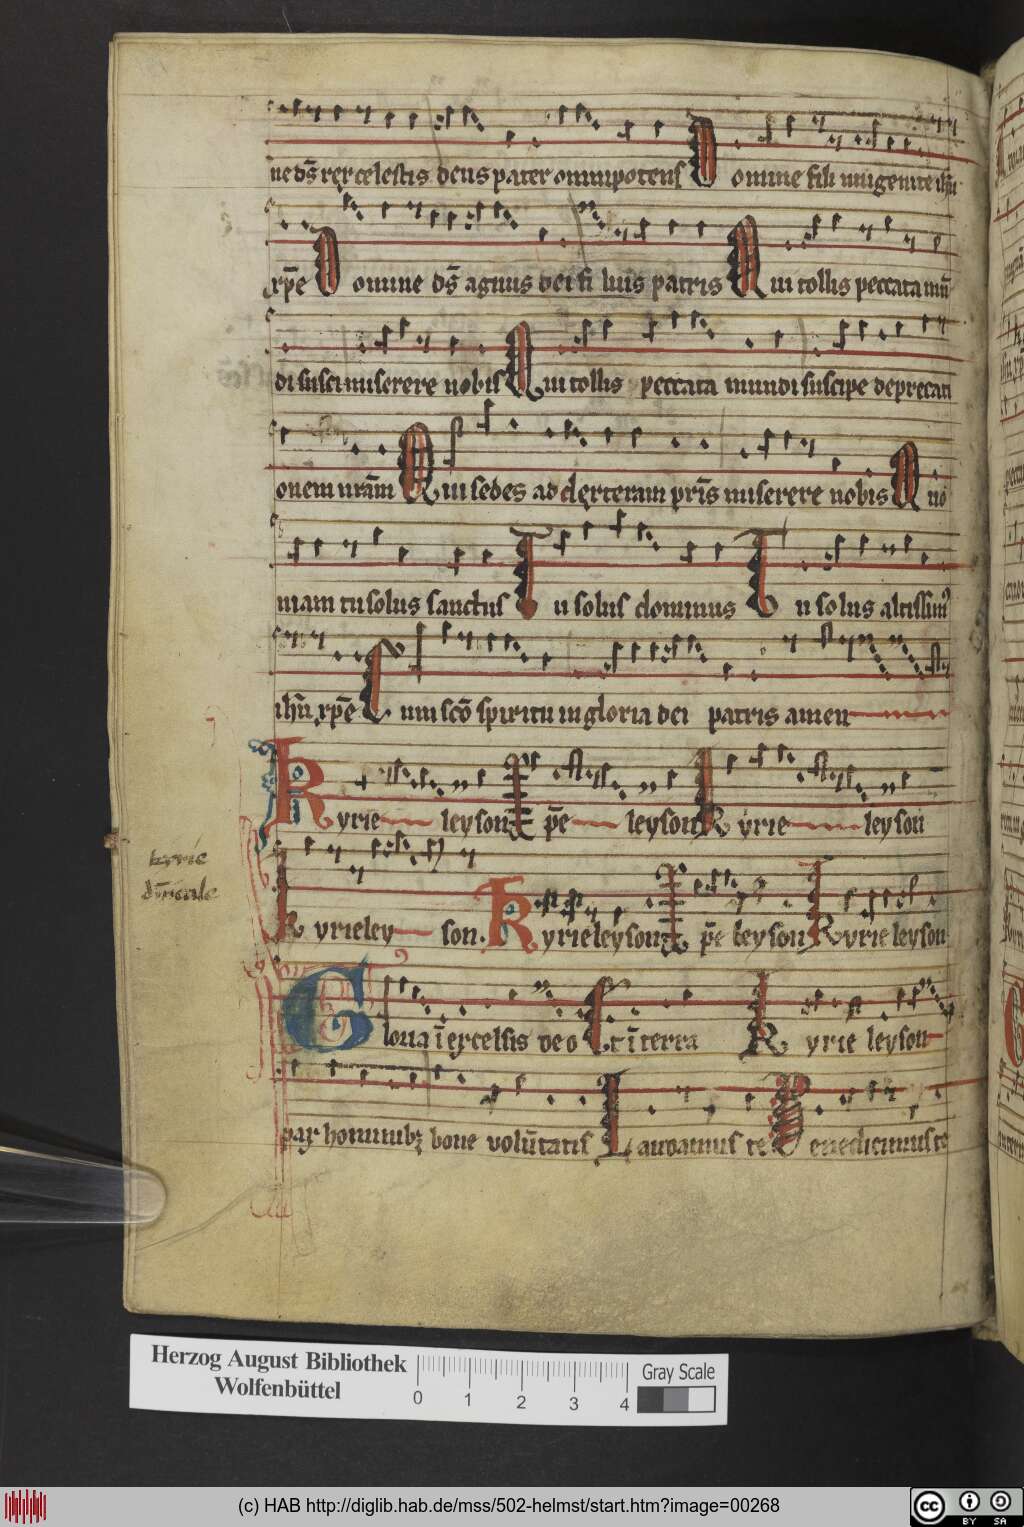 ne ds̄ rex celestis deus pater omnipotens Domine fili unigenite ihū
xp̄e Domine ds̄ agnus dei filius patris Qui tollis peccata mū
di miserere nobis Qui tollis peccata mundi suscipe deprecati
onem nr̄am Qui sedes ad dexteram pr̄is miserere nobis Quo
niam tu solus sanctus Tu solus dominus Tu solus altissimꝰ
ihū xp̄e Cum scō spiritu in gloria dei patris amen
Kyrie leyson Xp̄e leyson Kyrie leyson
kyrie
dn̄icale
Kyrieley son. Kyrieleyson Xp̄e leyson Kyrie leyson
Gloria ī excelsis deo Et ī terra Kyrie leyson
pax hominibꝫ bone volūtatis Laudamus te Benedicimus te
Herzog August Bibliothek
Wolfenbüttel
0 1 2 3 4
Gray Scale
(c) HAB http://diglib.hab.de/mss/502-helmst/start.htm?image=00268
cc BY SA